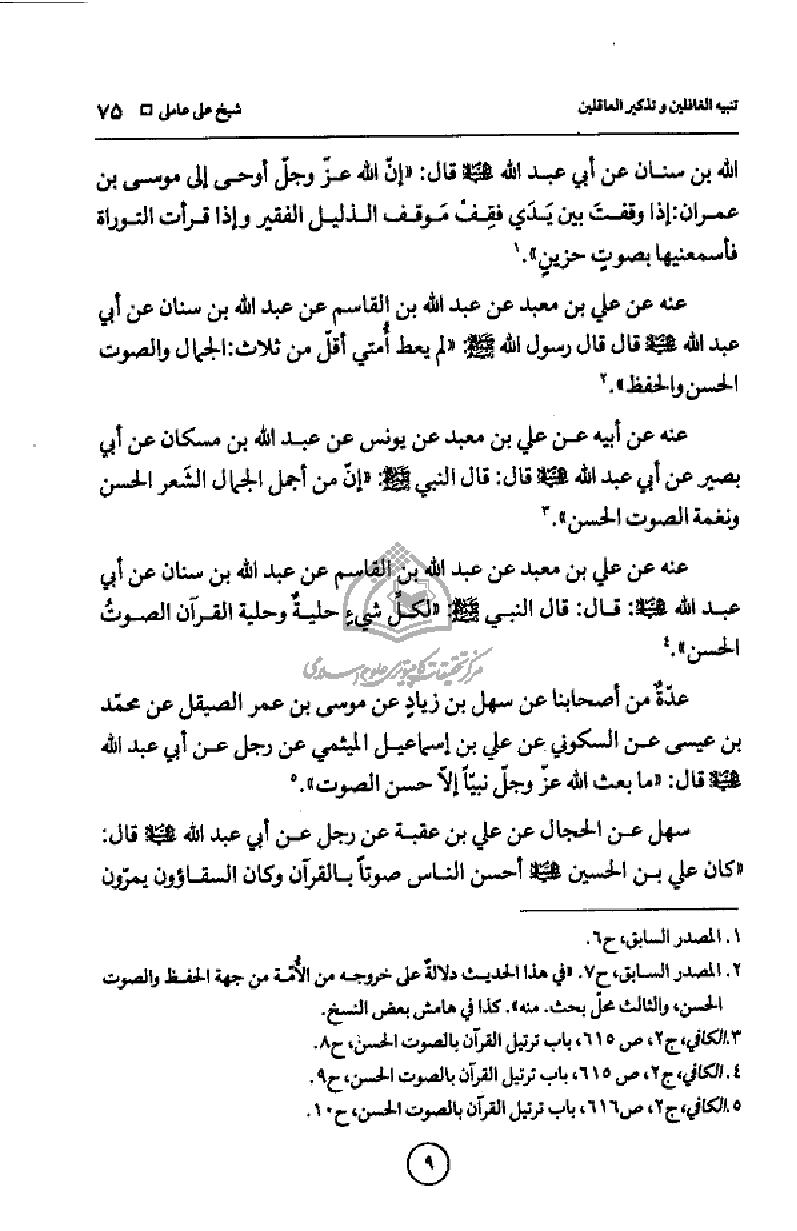 تنبيه الغافلين و تذكير العاقلين
شيخ على عاملى □ ٧۵
الله بن سنان عن أبي عبد الله ﷺ قال: «إنّ الله عزّ وجلّ أوحى إلى موسى بن
عمران: إذا وقفتَ بين يَدَي فقِفْ مَوقف الذليل الفقير وإذا قرأت التوراة
فأسمعنيها بصوتٍ حزينٍ».١
عنه عن علي بن معبد عن عبد الله بن القاسم عن عبد الله بن سنان عن أبي
عبد الله قال قال رسول الله ﷺ: «لم يعط أُمتي أقلّ من ثلاث: الجمال والصوت
الحسن والحفظ».٢
عنه عن أبيه عن علي بن معبد عن يونس عن عبد الله بن مسكان عن أبي
بصير عن أبي عبد الله قال: قال النبي ﷺ: «إنّ من أجمل الجمال الشَعر الحسن
ونغمة الصوت الحسن».٣
عنه عن علي بن معبد عن عبد الله بن القاسم عن عبد الله بن سنان عن أبي
عبد الله : قال: قال النبي ﷺ: «لكلّ شيءٍ حليةٌ وحلية القرآن الصوتُ
الحسن».٤
مركز تحقيقات كامپيوترى علوم اسلامى
عدّةٌ من أصحابنا عن سهل بن زيادٍ عن موسى بن عمر الصيقل عن محمّد
بن عيسى عن السكوني عن علي بن إسماعيل الميثمي عن رجل عن أبي عبد الله
قال: «ما بعث الله عزّ وجلّ نبيّاً إلاّ حسن الصوت».٥
سهل عن الحجال عن علي بن عقبة عن رجل عن أبي عبد الله قال:
«كان علي بن الحسين أحسن الناس صوتاً بالقرآن وكان السقاؤون يمرّون
١. المصدر السابق، ح٦.
٢. المصدر السابق، ح٧. «في هذا الحديث دلالةٌ على خروجه من الأُمّة من جهة الحفظ والصوت
الحسن، والثالث محلّ بحث. منه». كذا في هامش بعض النسخ.
٣. الكافي، ج٢، ص ٦١٥، باب ترتيل القرآن بالصوت الحسن، ح٨.
٤. الكافي، ج٢، ص ٦١٥، باب ترتيل القرآن بالصوت الحسن، ح٩.
٥. الكافي، ج٢، ص٦١٦، باب ترتيل القرآن بالصوت الحسن، ح١٠.
٩